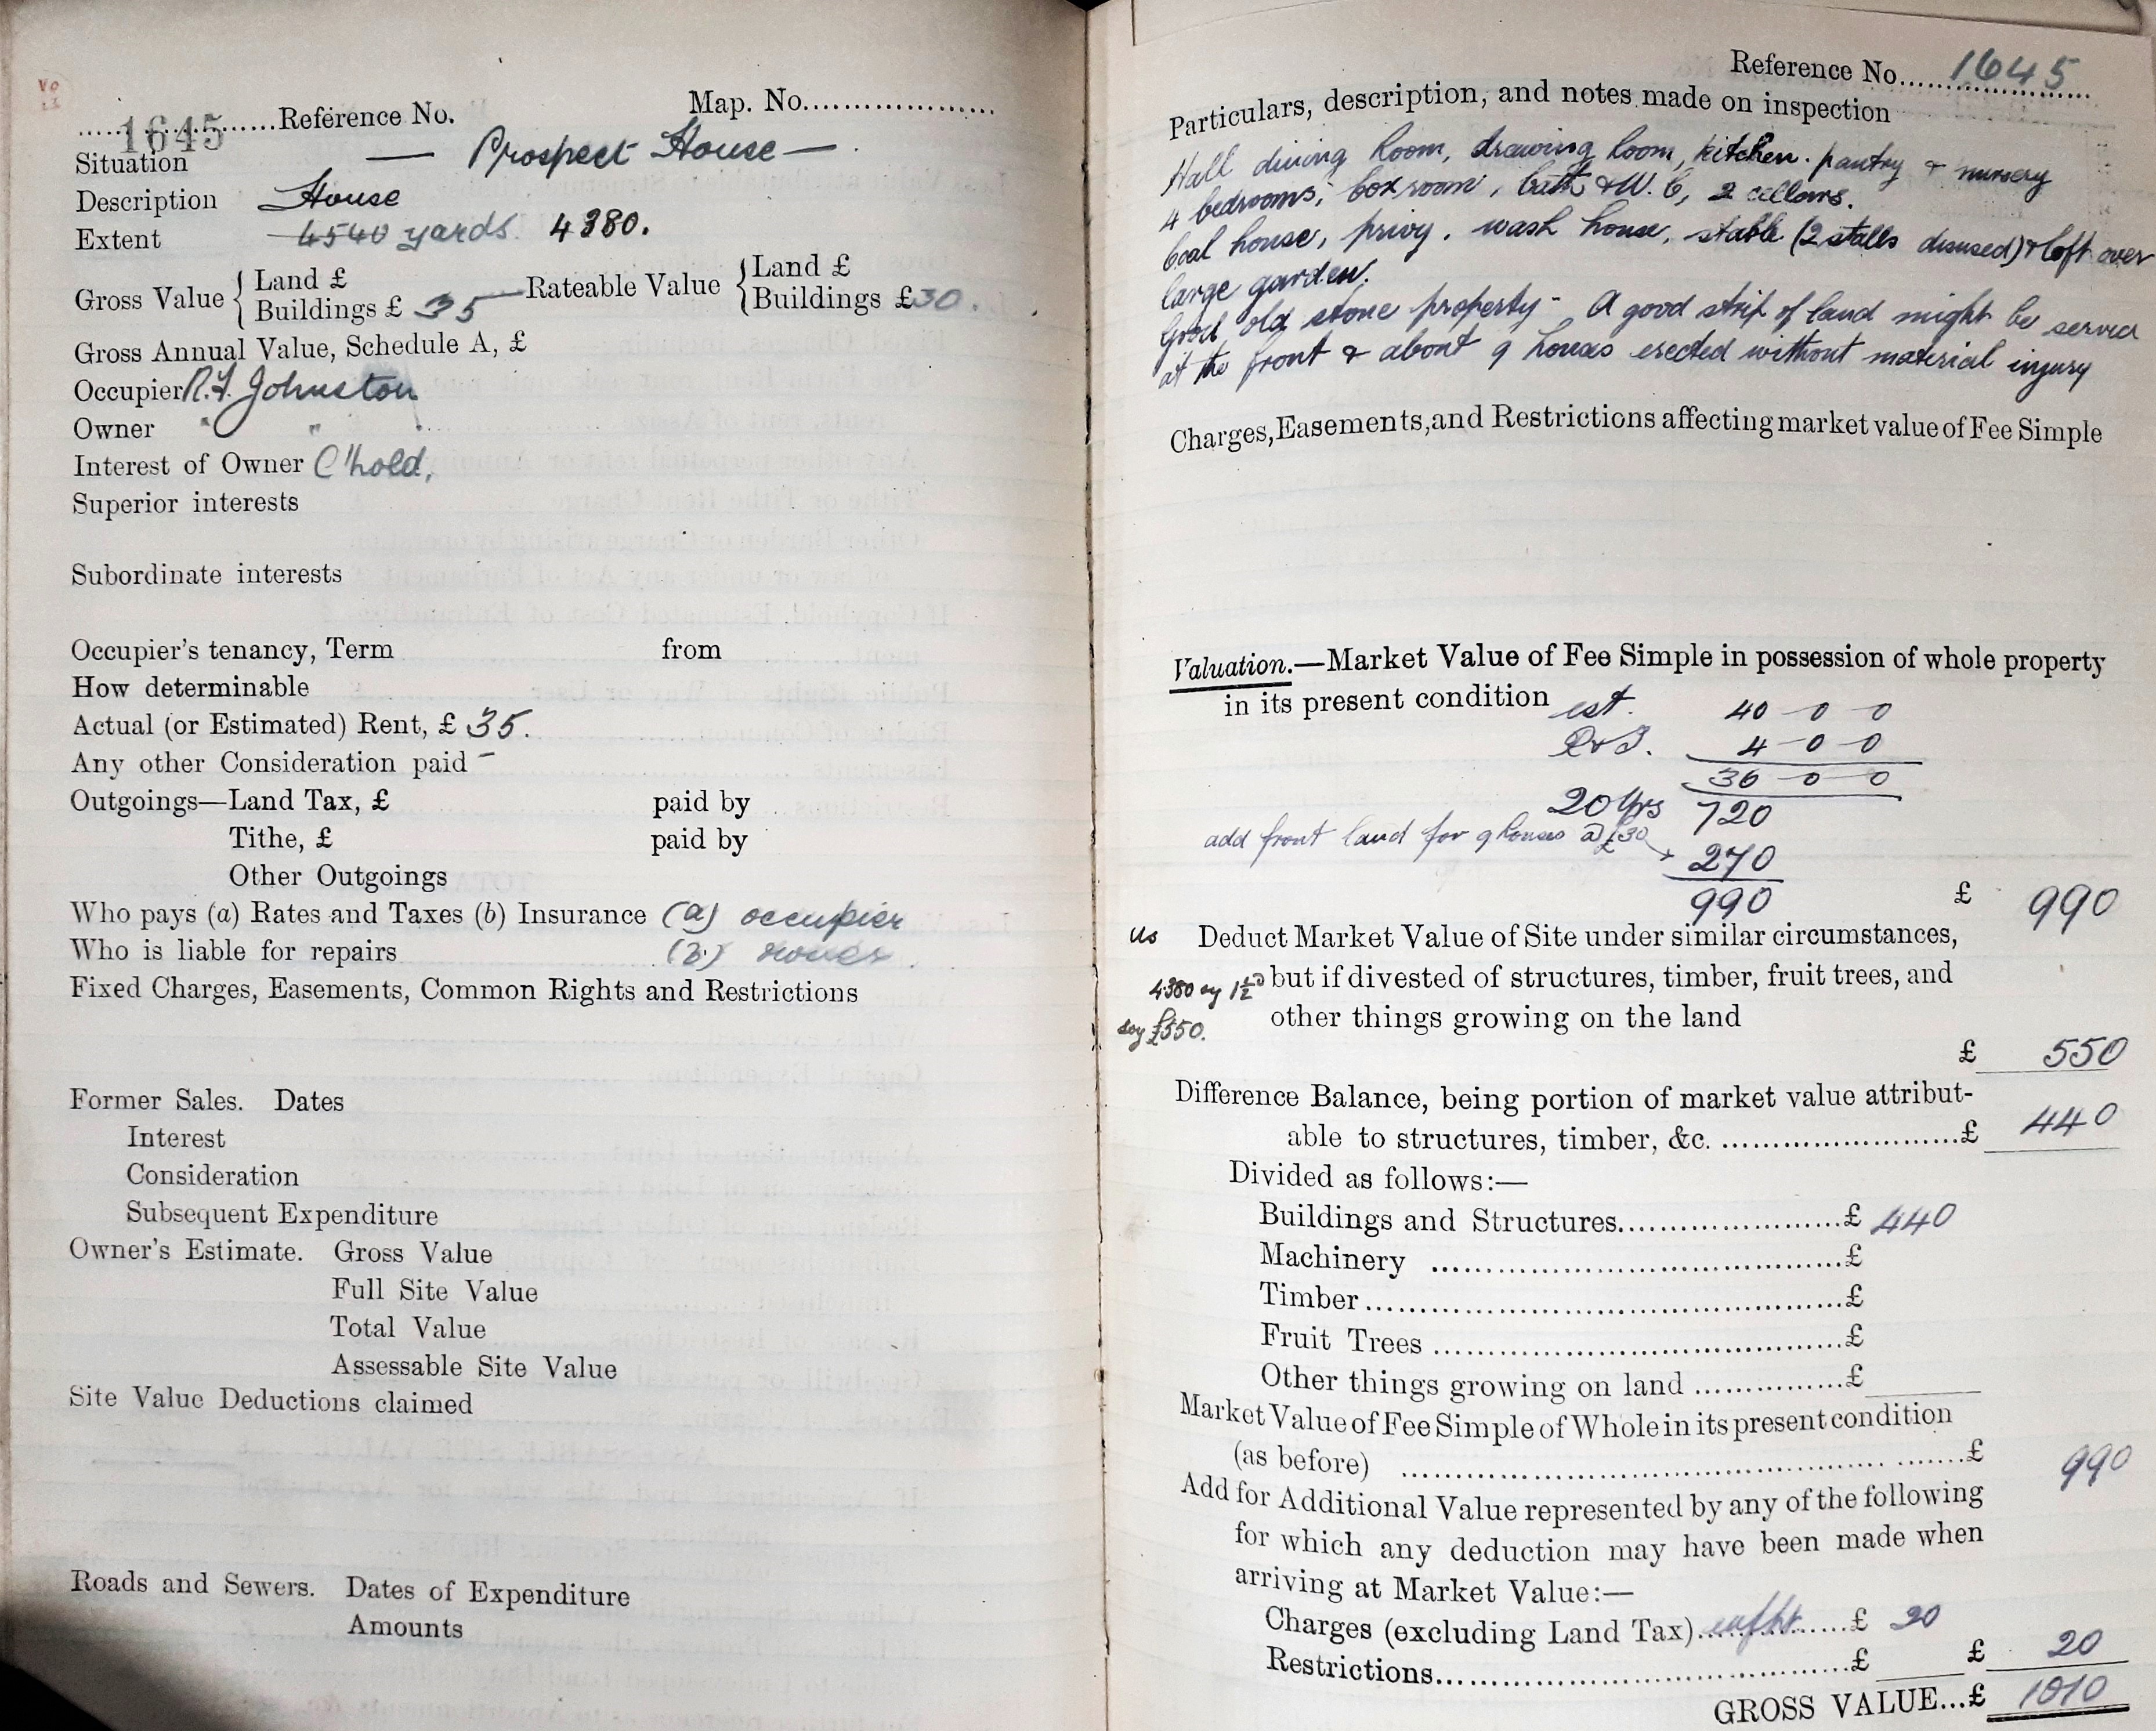 1645 Reference No. Map. No.
Situation — Prospect House —
Description House
Extent 4540 yards. 4380.
Gross Value { Land £ Rateable Value { Land £
Buildings £ 35 Buildings £30.
Gross Annual Value, Schedule A, £
Occupier Johnston
Owner " "
Interest of Owner C'hold,
Superior interests
Subordinate interests
Occupier's tenancy, Term from
How determinable
Actual (or Estimated) Rent, £ 35.
Any other Consideration paid -
Outgoings—Land Tax, £ paid by
Tithe, £ paid by
Other Outgoings
Who pays (a) Rates and Taxes (b) Insurance (a) occupier
Who is liable for repairs (b) owner.
Fixed Charges, Easements, Common Rights and Restrictions
Former Sales. Dates
Interest
Consideration
Subsequent Expenditure
Owner's Estimate. Gross Value
Full Site Value
Total Value
Assessable Site Value
Site Value Deductions claimed
Roads and Sewers. Dates of Expenditure
Amounts
Reference No. 1645
Particulars, description, and notes made on inspection
Hall dining Room, drawing Room, kitchen. pantry & nursery
4 bedrooms, box room, bath & W. C, 2 cellars.
Coal house, privy, wash house, stable (2 stalls disused) & loft over
large garden.
Good old stone property - A good strip of land might be
at the front & about 9 houses erected without material injury
Charges, Easements, and Restrictions affecting market value of Fee Simple
Valuation.—Market Value of Fee Simple in possession of whole property
in its present condition est. 40 - 0 - 0
4 - 0 - 0
36 - 0 - 0
20 Yrs 720
add front land for 9 houses @ £30 270
990 £ 990
Deduct Market Value of Site under similar circumstances,
4380 1½d but if divested of structures, timber, fruit trees, and
say £550. other things growing on the land
£ 550
Difference Balance, being portion of market value attribut-
able to structures, timber, &c. £ 440
Divided as follows:—
Buildings and Structures £ 440
Machinery £
Timber £
Fruit Trees £
Other things growing on land £
Market Value of Fee Simple of Whole in its present condition
(as before) £ 990
Add for Additional Value represented by any of the following
for which any deduction may have been made when
arriving at Market Value:—
Charges (excluding Land Tax) £ 20
Restrictions £ £ 20
GROSS VALUE...£ 1010